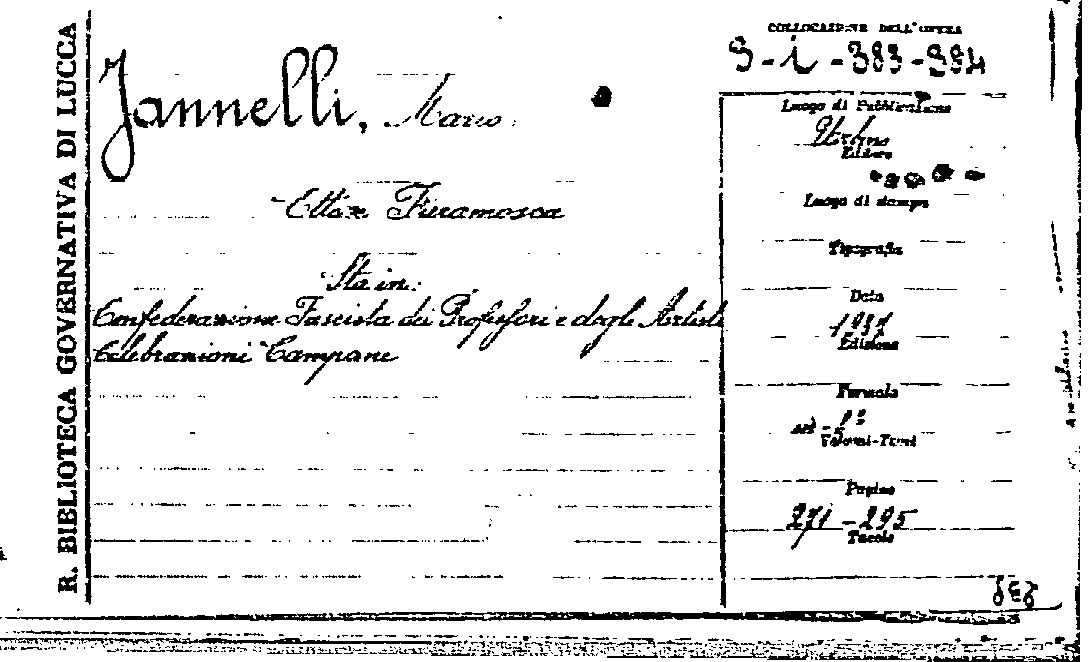 R. BIBLIOTECA GOVERNATIVA DI LUCCA
COLLOCAZIONE DELL'OPERA
Jannelli, Mario.
Luogo di Pubblicazione
Urbino
Editore
Luogo di stampa
Ettore Fieramosca
Tipografia
Sta in:
Data
Confederazione Fascista dei Professori e degli Artisti
1937
Edizione
Celebrazioni Campane
Formato
in - 8°
Volumi-Tomi
Pagine
271 - 295
Tavole